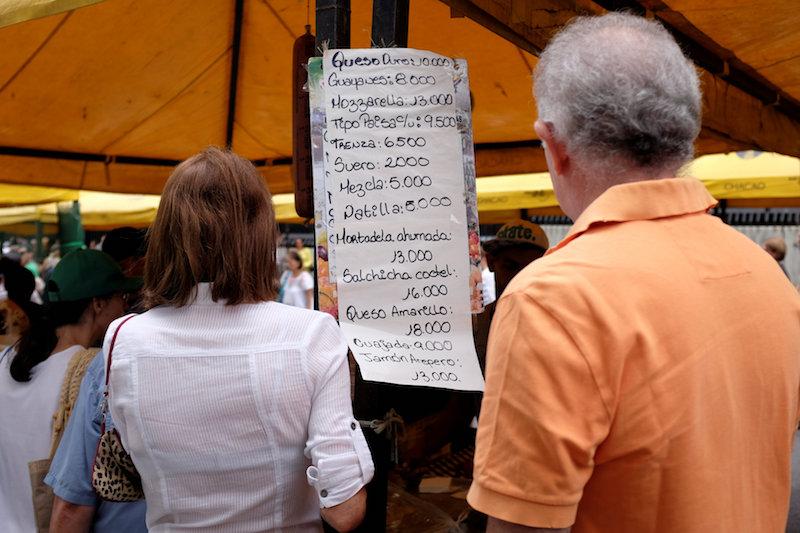 Queso Duro: 10.000
Guayanes: 8.000
Mozzarella: 13.000
Tipo Paisa c/u: 9.500
Trenza: 6.500
Suero: 2.000
Mezcla: 5.000
Natilla: 8.000
Mortadela ahumada:
13.000
Salchicha coctel:
16.000
Queso Amarillo:
18.000
Cuajada: 9.000
Jamón Arepero:
13.000
CHACAO